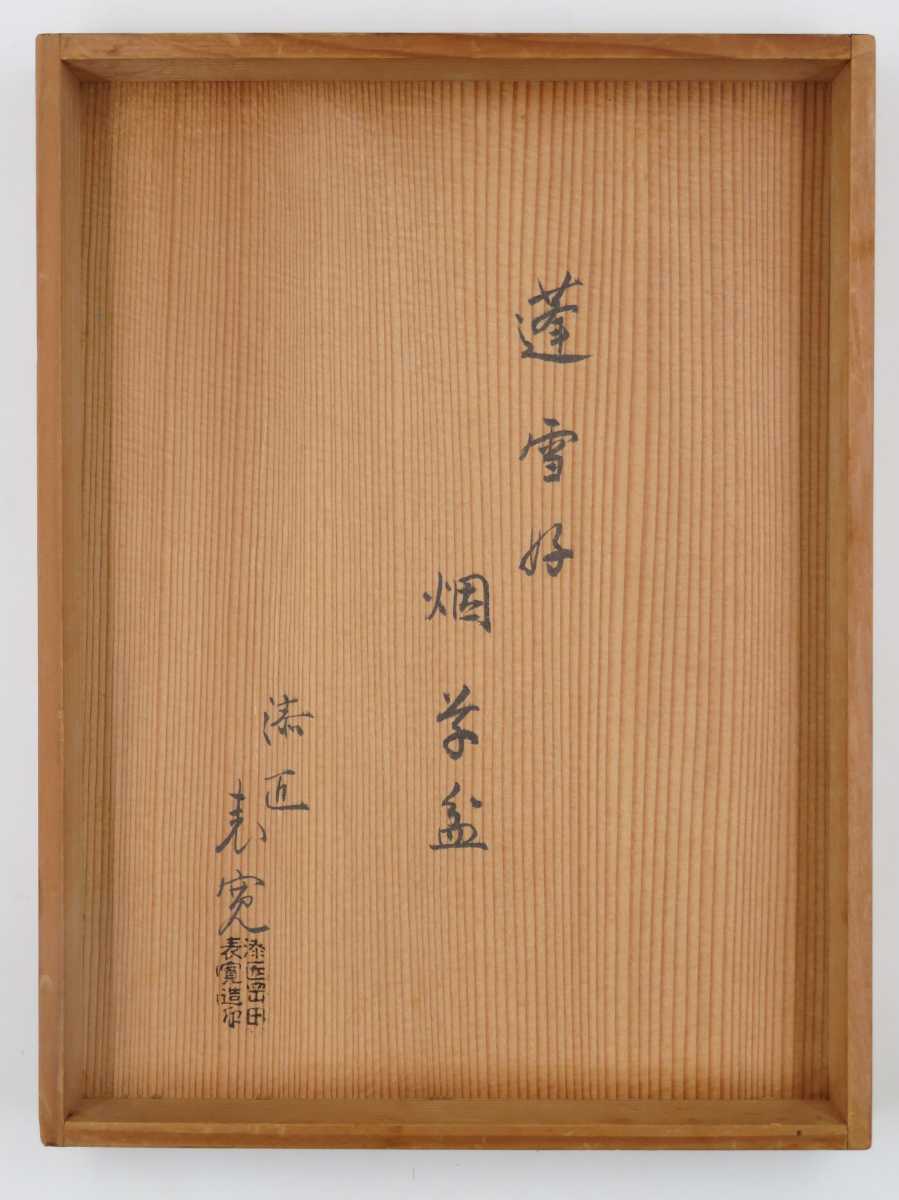 蓬雪好
烟草盆
漆匠
表寛
漆匠岡田
表寛造印